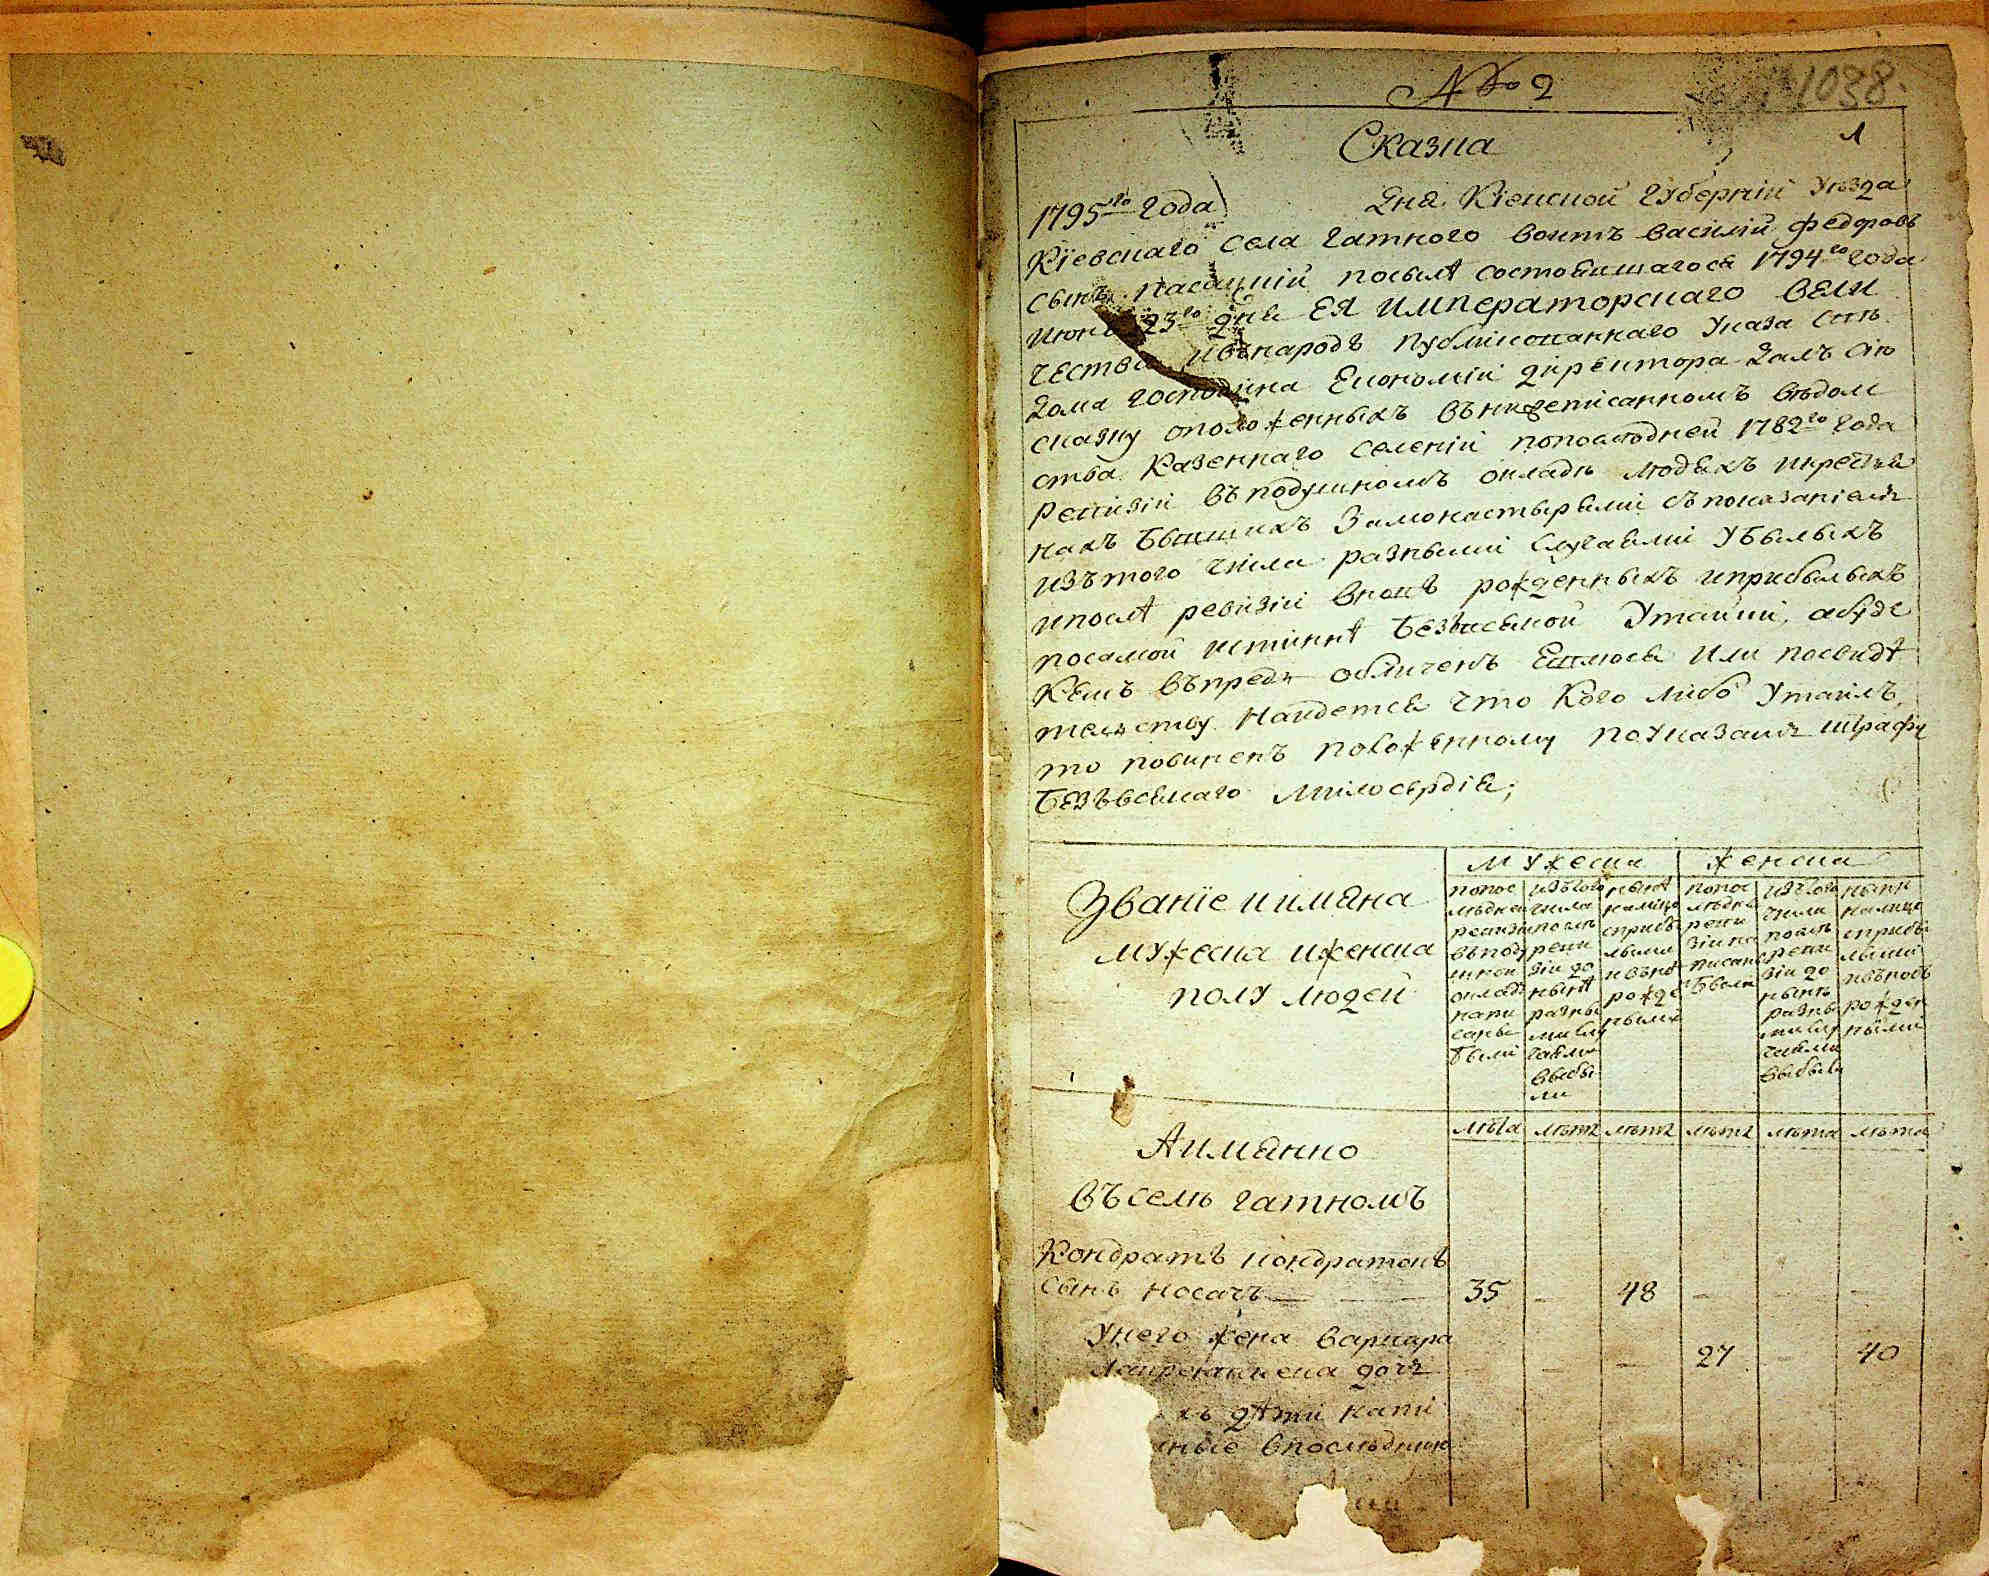 № 2
1038.
1
Сказка
1795го года дня Кіевской губерніи уѣзда
Кіевскаго села гатного воитъ василій федоровъ
сынъ посылѣ состоявшагося 1794го года
июня 23го дня ЕЯ императорскаго вели
чества ивънародъ публикованнаго указа отъ
дома господина Економіи директора далъ сію
сказку ополо женныхъ внижеписанномъ вѣдом
ства казеннаго селеніи попоследней 1782го года
ревизіи въподушномъ окладѣ людяхъ икрестья
нахъ бывшихъ замонастырями съпоказаніемъ
изътого числа разными случаями убылыхъ
ипослѣ ревизіи вновь рожденныхъ иприбылыхъ
посамой истиннѣ безвсякой утайки, абуде
кемъ впредь обличенъ явлюся или посвидѣ
тельству найдется что кого либо утаилъ,
то повиненъ положенному поуказамъ штрафу
безъвсякаго милосердія;
мужеска женска
Званіе иимяна
мужеска иженска
полу людей
попос лѣдней ревизіи въподу шной окладъ напи саны были
изътого числа послѣ реви зіи до нынѣ разны ми слу чаями выбы ли
нынѣ налицо сприбы лыми ивновь рожде нными
попос лѣдней реви зіи на писано были
изътого числа послѣ реви зіи до нынѣ разны ми слу чаями выбыли
нынѣ налицо сприбы лыми ивъновь рожден ными
лѣта лѣта лѣта лѣта лѣта лѣта
Аимянно
въселѣ гатномъ
Кондратъ кондратовъ
сынъ носачъ 35 — 48 — — —
унего жена варвара
дочь — — — 27 — 40
хъ дѣти напи
нные впоследнюю